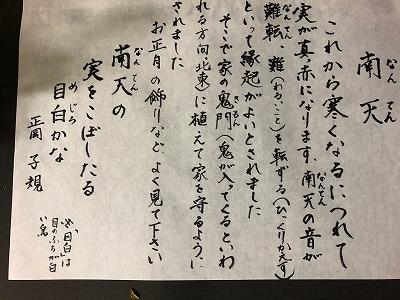 南天
なんてん
これから寒くなるにつれて
実が真赤になります、南天の音が
なんてん
難転、難(わるいこと)を転ずる(ひっくりかえす)
なんてん
といって縁起がよいとされました
そこで家の鬼門(鬼が入ってくるといわ
きもん
れる方向北東)に植えて家を守るように
されました
お正月の飾りなど、よく見て下さい
南天の
なんてん
実をこぼしたる
目白かな
めじろ
正岡子規
※「目白」は
目のふちが白
い鳥